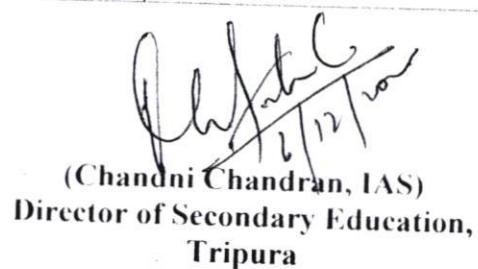 (Chandni Chandran, IAS)
Director of Secondary Education,
Tripura